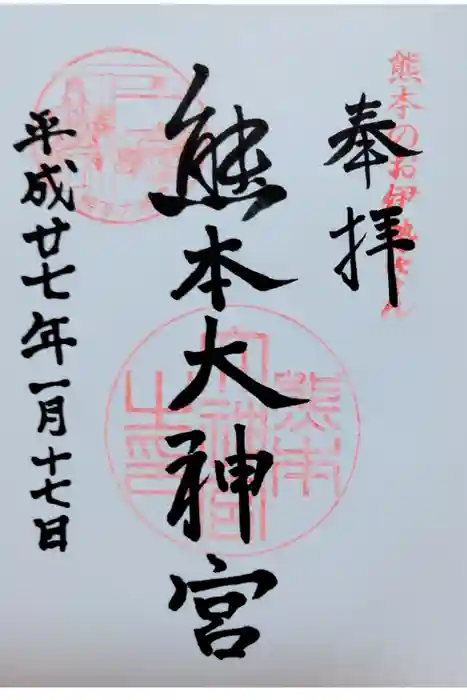 熊本のお伊勢さん
奉拝
熊本大神宮
熊本
大神宮
之印
平成廿七年一月十七日